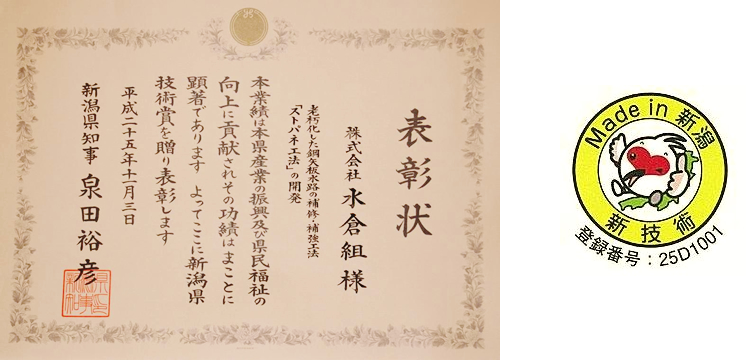 表彰状
株式会社 水倉組様
老朽化した鋼矢板水路の補修・補強工法
「ストパネ工法」の開発
本業績は本県産業の振興及び県民福祉の
向上に貢献されその功績はまことに
顕著であります よってここに新潟県
技術賞を贈り表彰します
平成二十五年十一月三日
新潟県知事 泉田裕彦
Made in 新潟
新技術
登録番号：25D1001